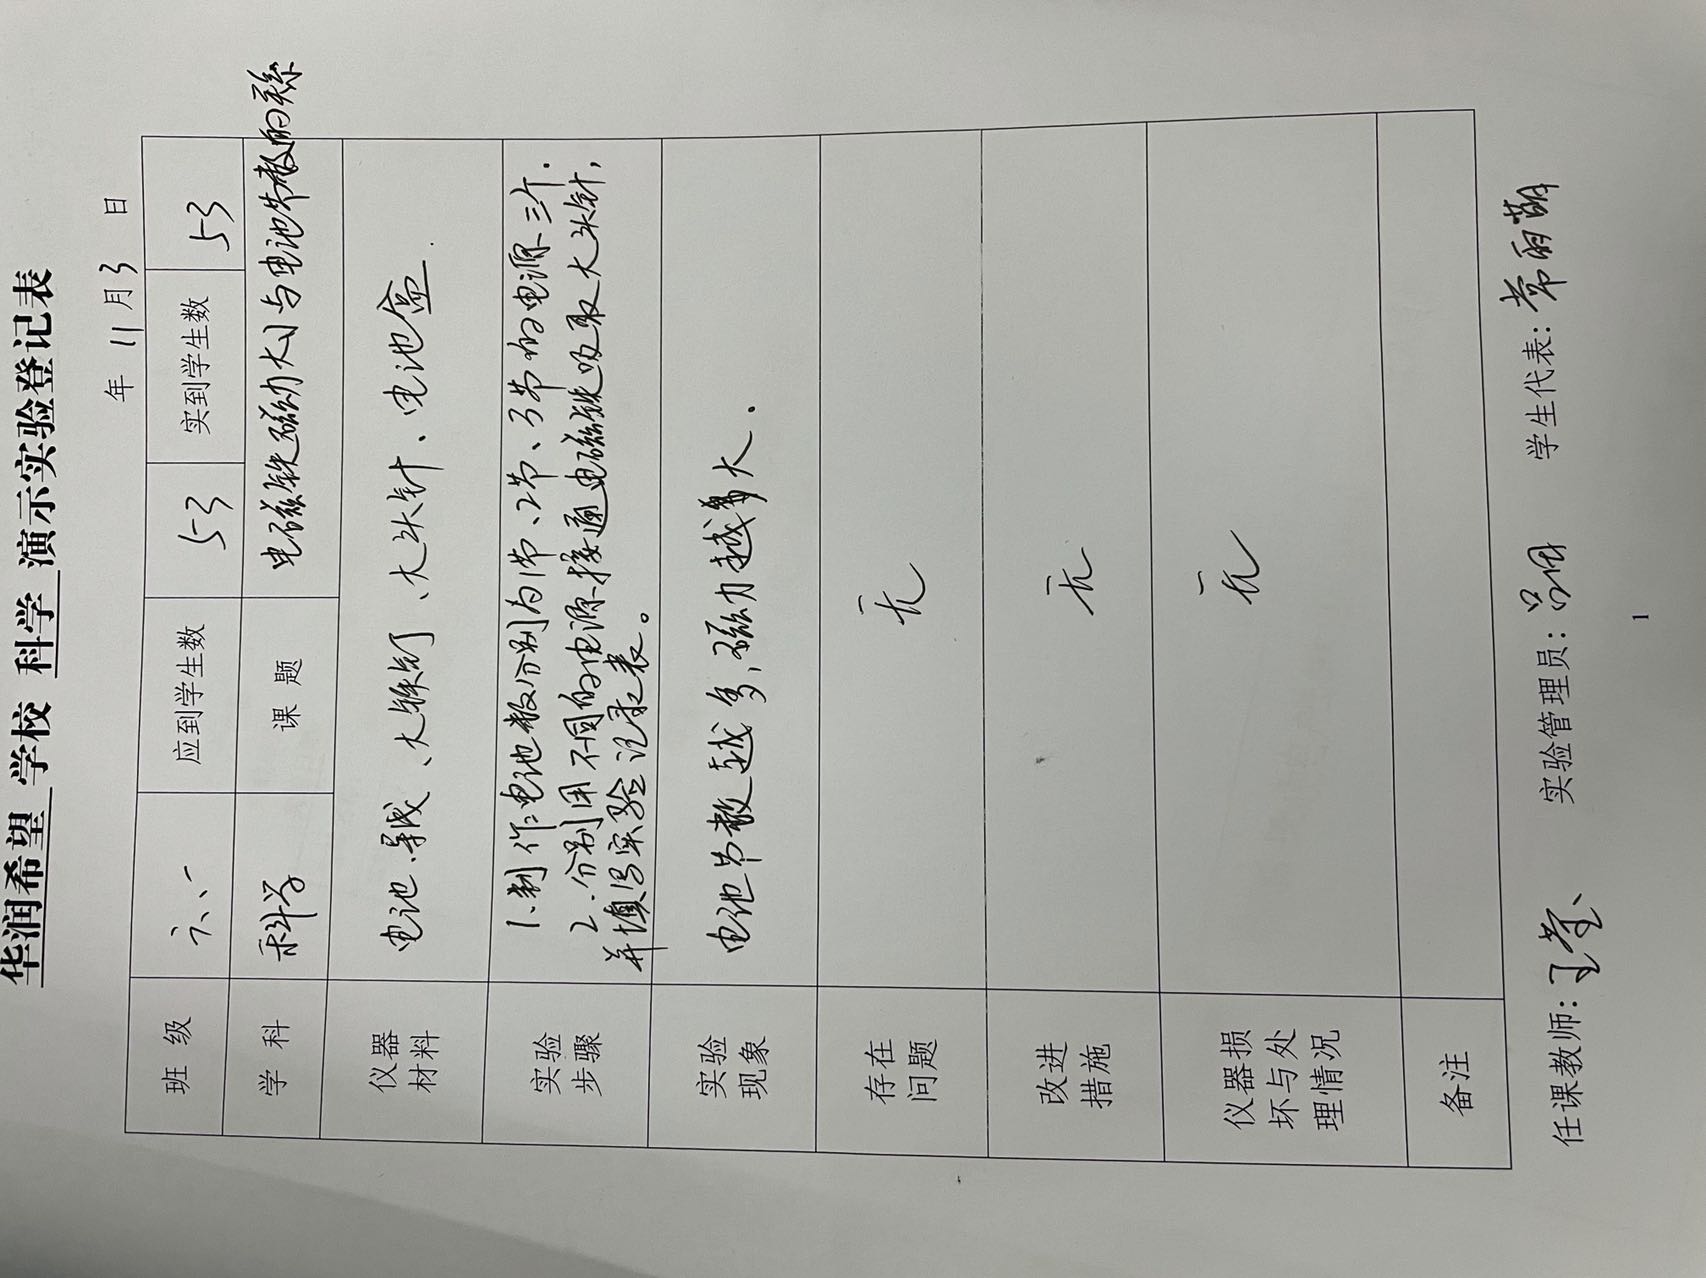 华润希望 学校 科学 演示实验登记表
年 11 月 3 日
班 级 六、一 应到学生数 53 实到学生数 53
学 科 科学 课 题 电磁铁磁力大小与电池节数的关系
仪器材料 电池、导线、大铁钉、大头针、电池盒.
实验步骤 1.制作电池数分别为1节、2节、3节的电源三个.
2.分别用不同的电源接通电磁铁吸取大头针,
并填写实验记录表。
实验现象 电池节数越多,磁力越大.
存在问题 无
改进措施 无
仪器损坏与处理情况 无
备注
任课教师: 实验管理员: 学生代表: 常雨萌
1